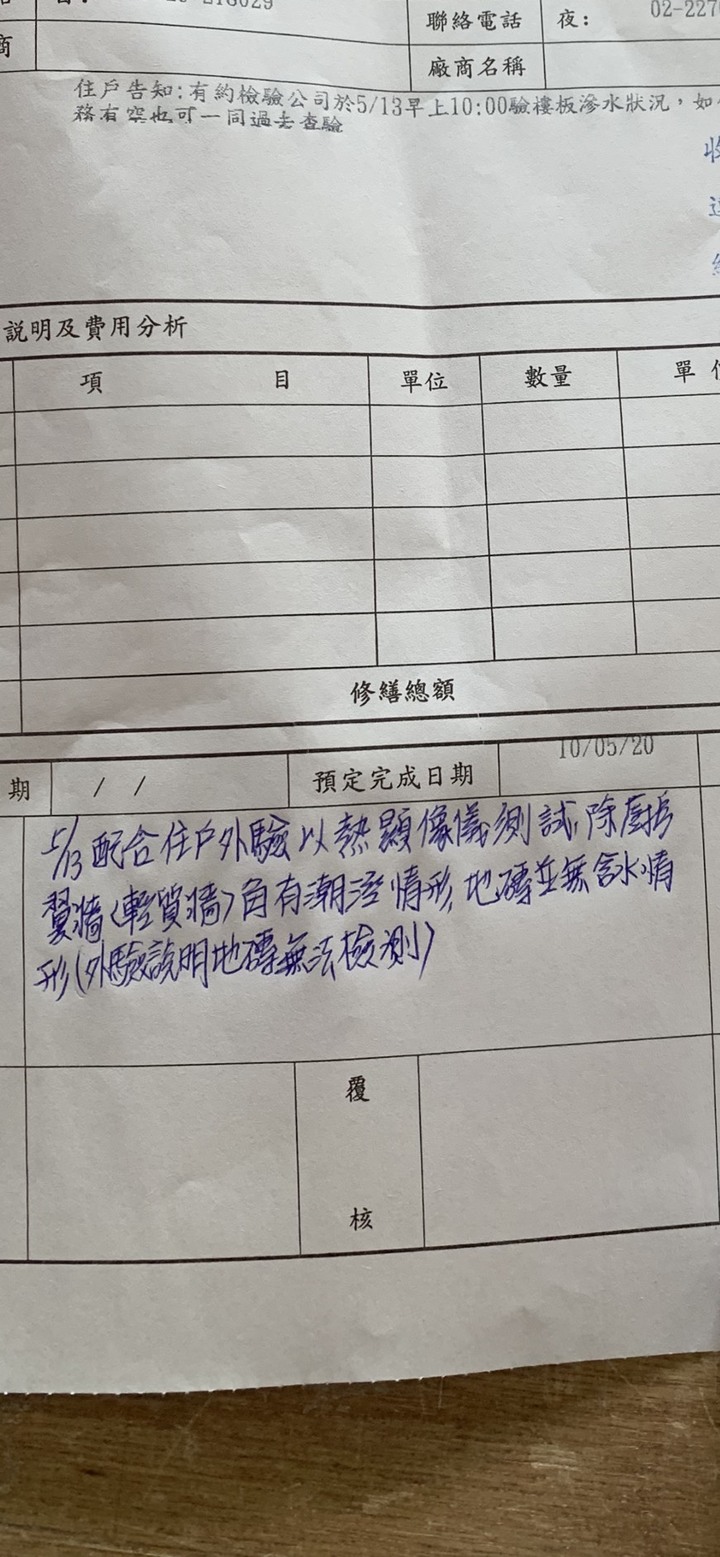 聯絡電話 夜: 02-227
商 廠商名稱
住戶告知:有約檢驗公司於5/13早上10:00驗樓板滲水狀況,如
務有空也可一同過去查驗
收
說明及費用分析
項 目 單位 數量 單
修繕總額
期 / / 預定完成日期 10/05/20
5/13配合住戶外驗以熱顯像儀測試,除廚房
翼牆(輕質牆)角有潮溼情形,地磚並無含水情
形(外驗說明地磚無法檢測)
覆
核